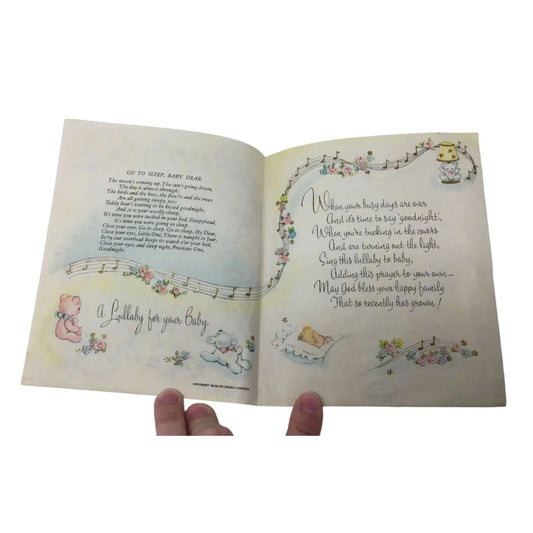 GO TO SLEEP, BABY DEAR
The moon's coming up, The sun's going down,
The day is almost through;
The birds and the bees, the flow'rs and the trees
Are all getting sleepy, too;
Teddy bear's waiting to be kissed goodnight,
And so is your woolly sheep;
It's time you were tucked in your bed, Sleepyhead,
It's time you were going to sleep.
Close your eyes, Go to sleep, Go to sleep, My Dear,
Close your eyes, Little One, There is naught to fear,
Ev'ry star overhead keeps its watch o'er your bed,
Close your eyes, and sleep tight, Precious One,
Goodnight.
A Lullaby for your Baby
COPYRIGHT
When your busy days are over
And it's time to say "goodnight",
When you're tucking in the covers
And are turning out the light,
Sing this lullaby to baby,
Adding this prayer to your own—
May God bless your happy family
That so recently has grown!